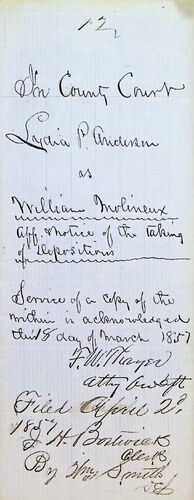 12
In County Court
Lydia P. Anderson
vs
William Molineux
Aff. Notice of the taking
of Depositions
Service of a copy of the
within is acknowledged
this 8 day of March 1857
F. W. Thayer
Atty
Filed April 2d
1857
J. H. Bostwick
Clerk
By Wm Smith